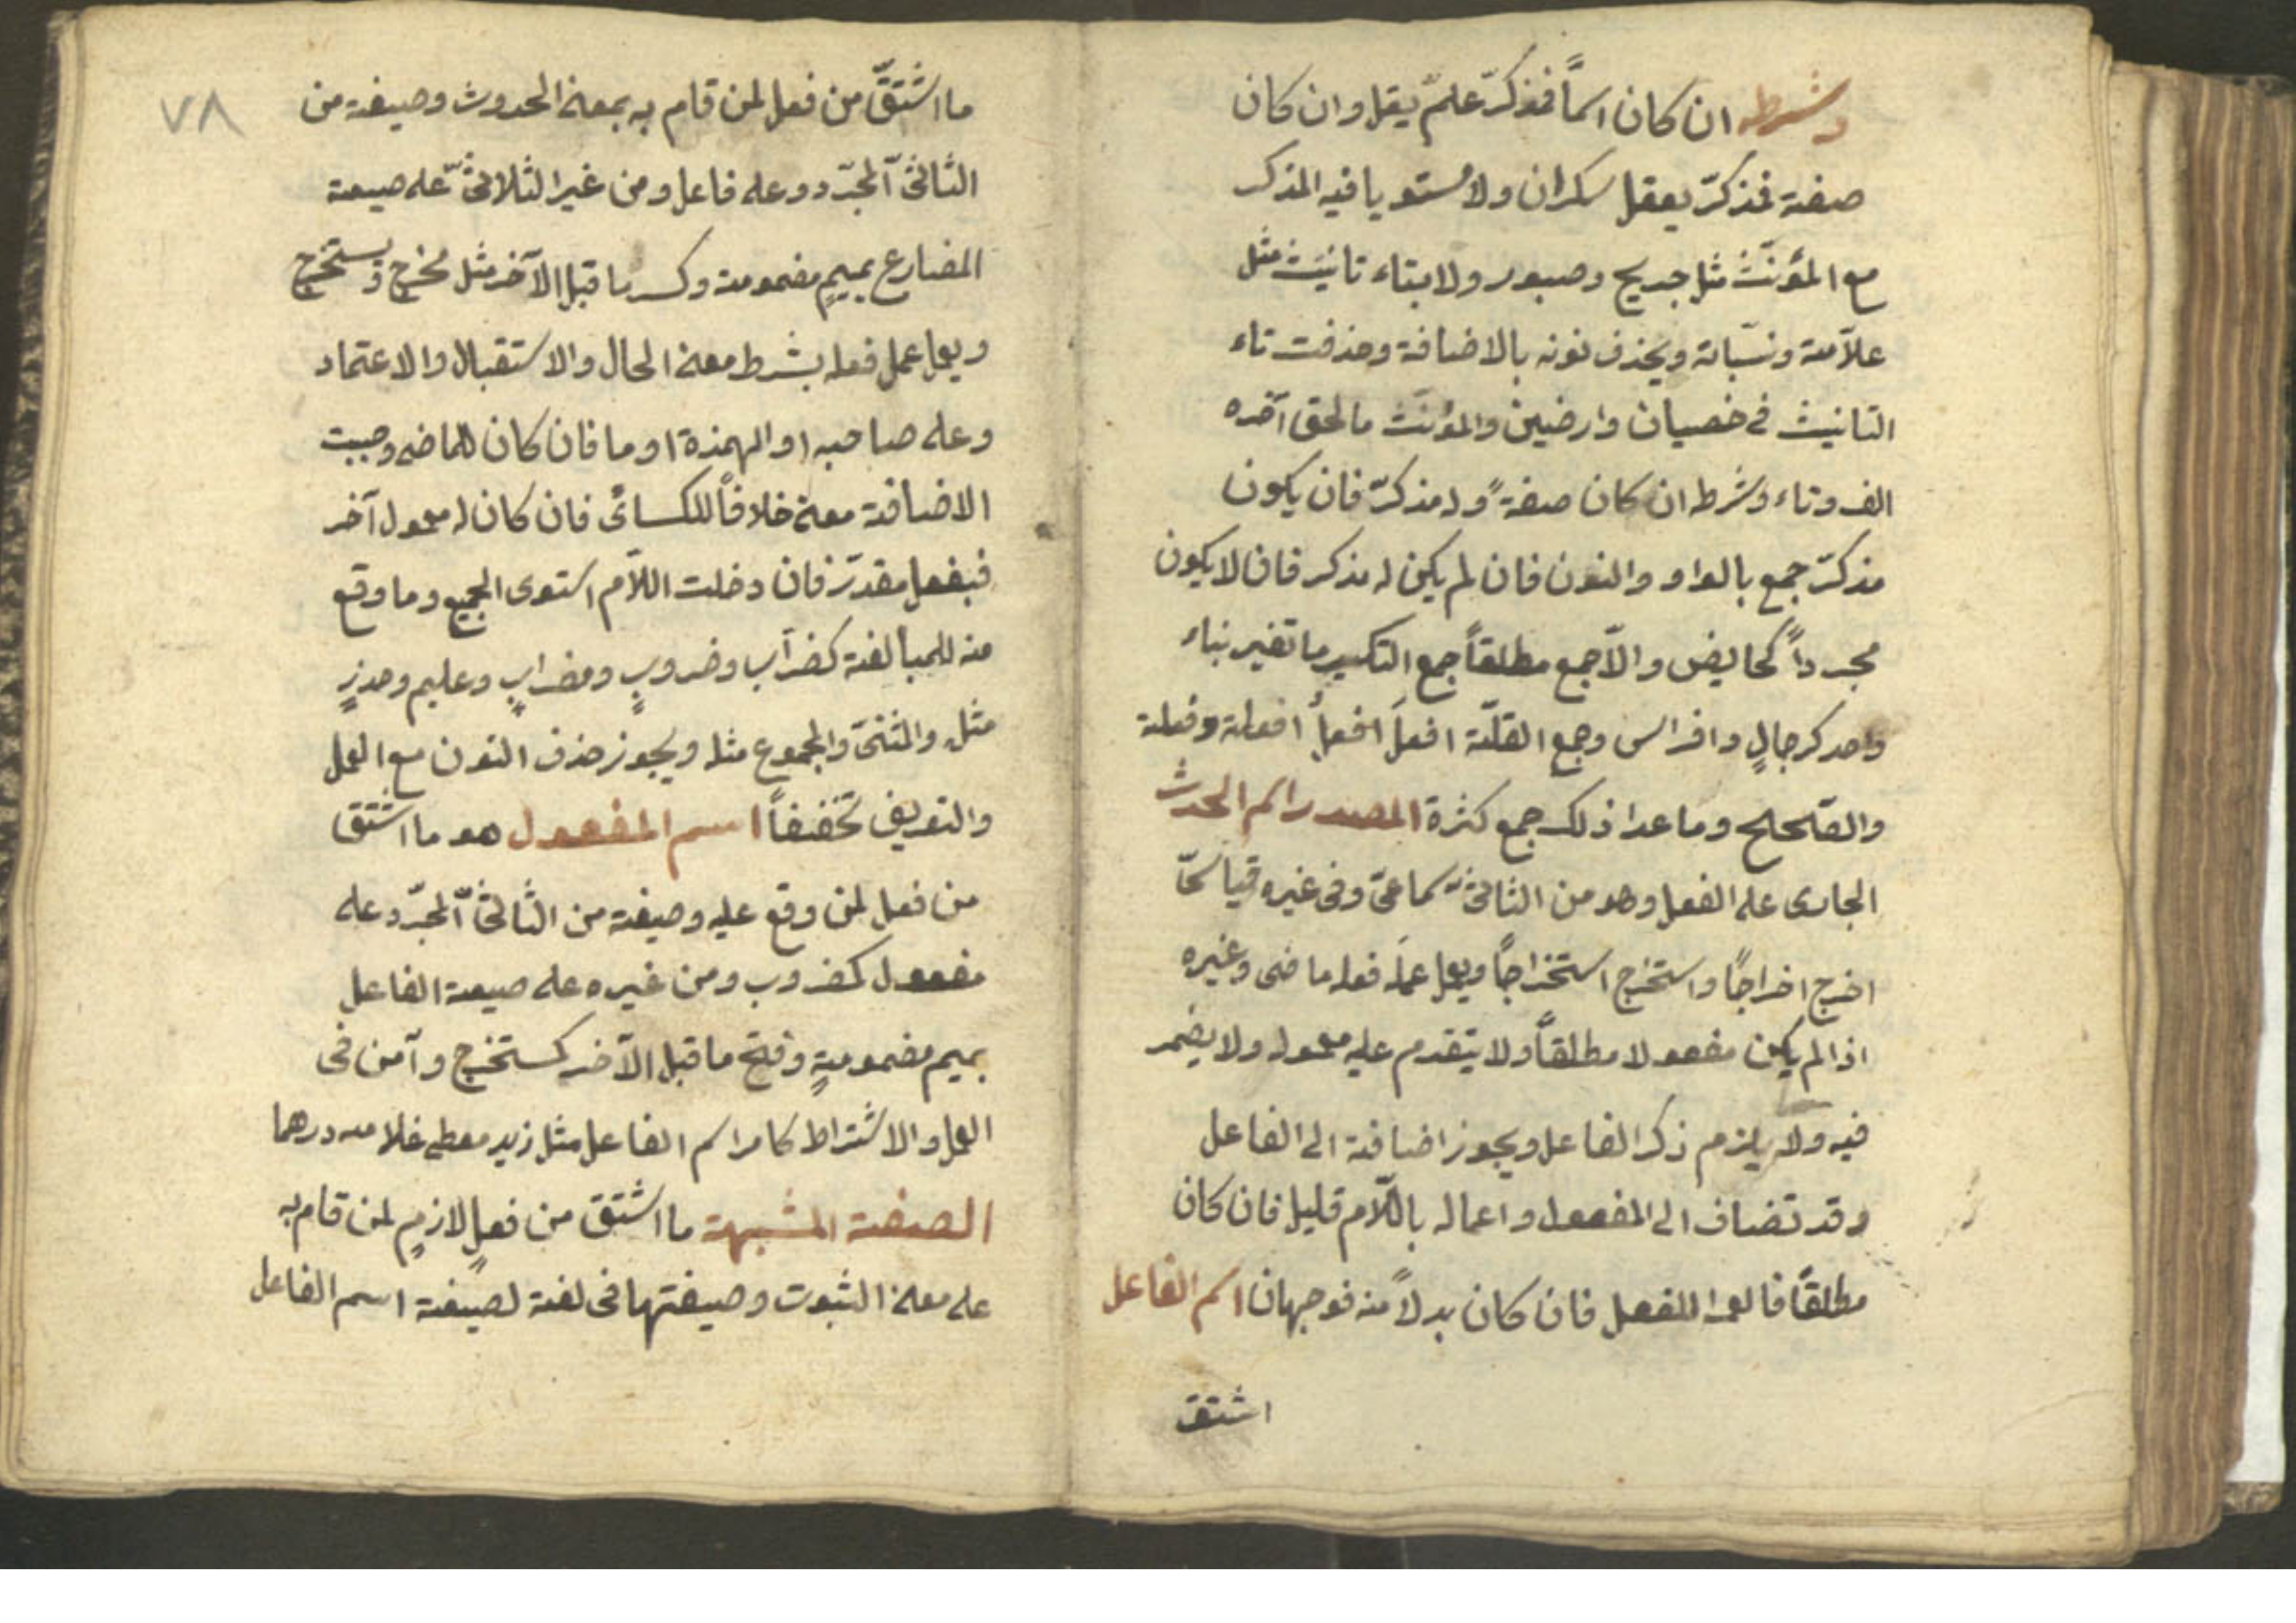 وشرطه ان كان اسماً فمذكرّ علمٌ يقل وان كان
صفة فمذكرّ يعقل سكران ولا مستويا فيه المذكر
مع المؤنّث مثل جريح وصبور ولا بتاء تانيث مثل
علاّمة ونسّابة ويحذف نونه بالاضافة وحذفت تاء
التانيث في خصيان وارضين والمؤنّث ما لحق آخره
الف وتاء وشرطه ان كان صفةً وله مذكرّ فان يكون
مذكرّ جمع بالواو والنون فان لم يكن له مذكر فان لا يكون
مجرداً كحايض والاّ جمع مطلقاً جمع التكسير ما تغير بناء
واحده كرجالٍ وافراس وجمع القلّة افعل افعال افعلة وفعلة
والصّحيح وما عدا ذلك جمع كثرة المصدر اسم الحدث
الجارى على الفعل وهو من الثلاثىّ سماعىّ وفى غيره قياسىّ
اخرج اخراجًا واستخرج استخراجًا ويعمل عمل فعله ماضى وغيره
اذا لم يكن مفعولا مطلقاً ولا يتقدم عليه معموله ولا يضمر
فيه ولا يلزم ذكر الفاعل ويجوز اضافة الى الفاعل
وقد تضاف الى المفعول واعماله باللّام قليل فان كان
مطلقاً فالعمل للفعل فان كان بدلاً منه فوجهان اسم الفاعل
اشتق
٧٨
ما اشتقّ من فعل لمن قام به بمعنى الحدوث وصيغة من
الثلاثىّ المجرّد وعلى فاعل ومن غير الثلاثىّ على صيغة
المضارع بميمٍ مضمومة وكسر ما قبل الآخر مثل مخرج ومستخرج
ويعمل عمل فعله بشرط معنى الحال والاستقبال والاعتماد
وعلى صاحبه او الهمزة او ما فان كان للماضى وجبت
الاضافة معنى خلافاً للكسائى فان كان له معمول آخر
فبفعل مقدّر فان دخلت اللاّم استوى الجميع وما وقع
منه للمبالغة كضرّاب وضروبٍ ومضرابٍ وعليم وحذرٍ
مثله والمثنّى والمجموع مثله ويجوز حذف النون مع العمل
والتعريف تخفيفاً اسم المفعول هو ما اشتق
من فعل لمن وقع عليه وصيغة من الثلاثىّ المجرّد على
مفعول كمضروب ومن غيره على صيغة الفاعل
بميم مضمومةٍ وفتح ما قبل الآخر كمستخرج وآمن فى
العمل والاشتراط كامر اسم الفاعل مثل زيد معطى غلامه درهما
الصفة المشبهة ما اشتق من فعلٍ لازمٍ لمن قام به
على معنى الثبوت وصيغتها فى لغة لصيغة اسم الفاعل